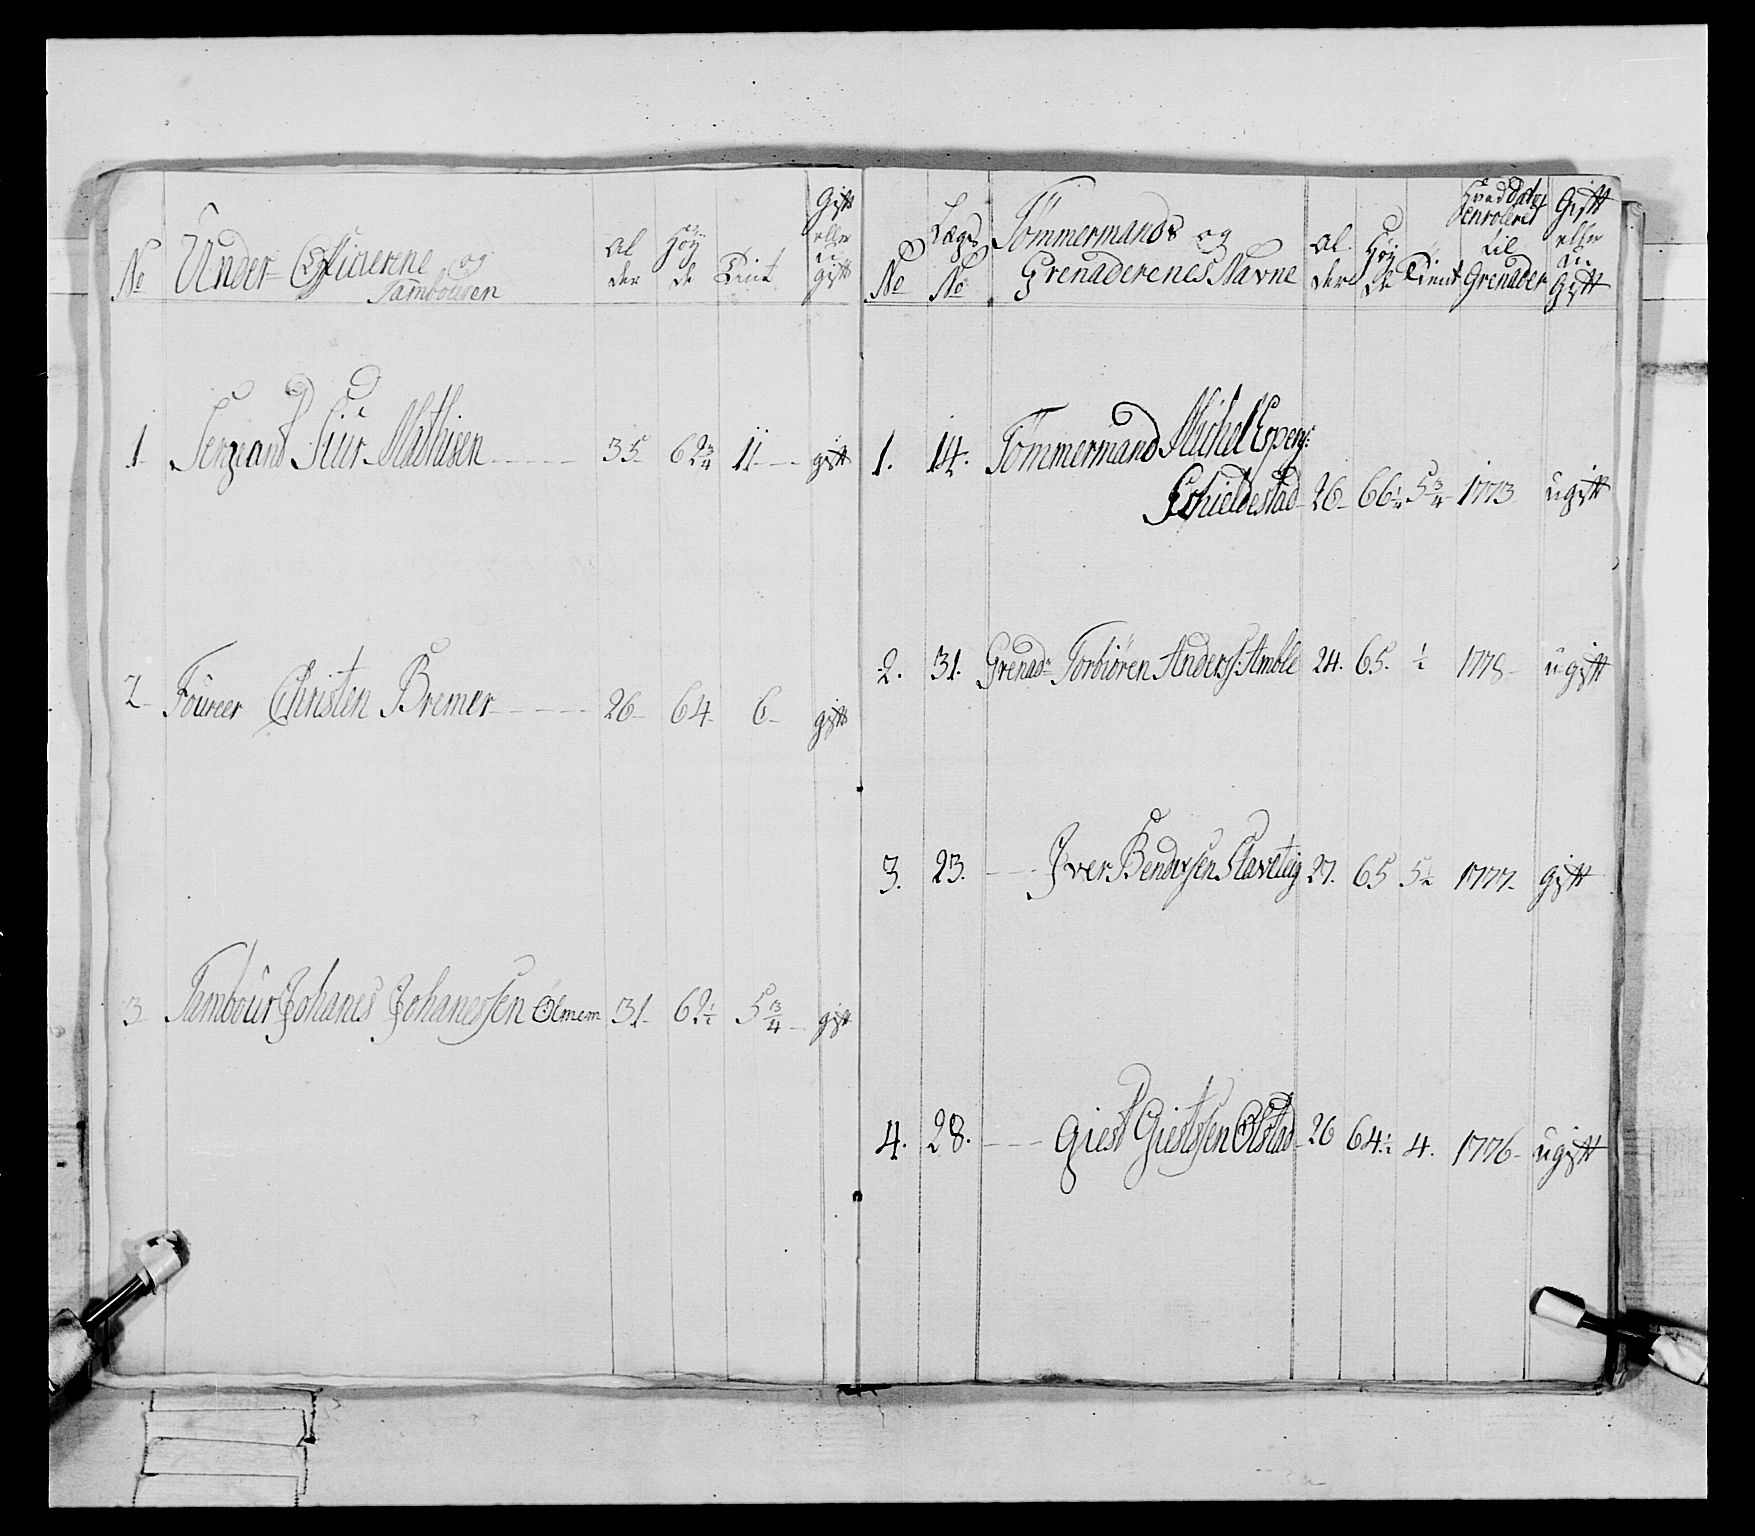 No
Under Officerene og
Tambouren
Al
der
Höy
de
Tient
Gift
eller
u
gift
1 Sergeant Siur Mathisen 35 62 3/4 11 gift
2 Foureer Christen Bremer 26 64 6 gift
3 Tambour Johanes Johanessen Ølmem 31 62 1/2 5 3/4 gift
No
Lægs
No
Tömmermands og
Grenaderenes Navne
Al
der
Höy
de
Tient
Hvad Dato
enroleret
til
Grenader
Gift
eller
u
Gift
1. 14. Tömmermand Michel Espens:
Schieldestad 26 66 1/4 5 3/4 1773 ugift
2. 31. Grenadr Torbiören Anders: Amble 24. 65. 1/2 1778 ugift
3. 23. Iver Bendixsen Slaveteig 27. 65 5 1/2 1777 gift
4. 28. Giest Giestssen Ølstad 26 64 1/2 4. 1776 ugift